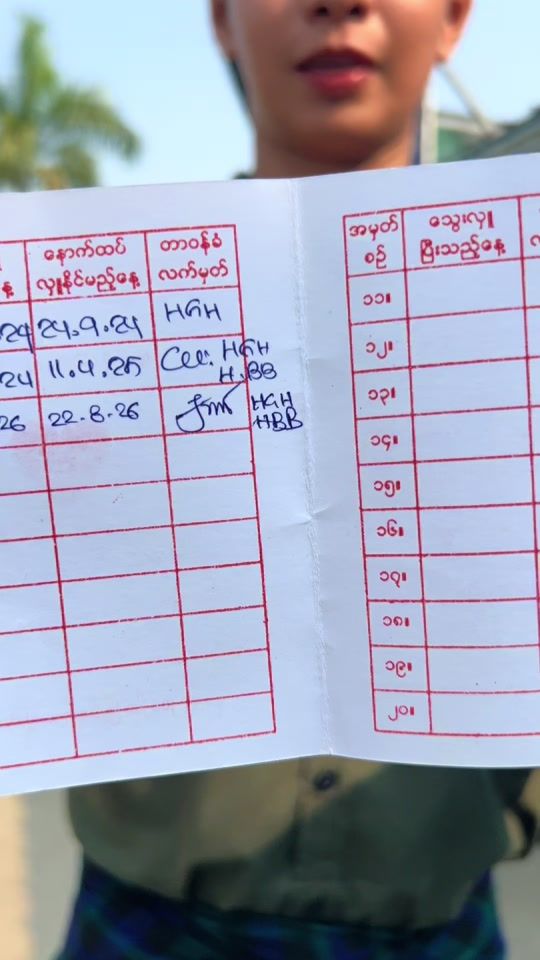 နောက်ထပ် တာဝန်ခံ
လှူနိုင်မည့်နေ့ လက်မှတ်
24 24.9.24 HGH
24 11.4.25 HGH
H.BB
26 22-8-26 HGH
HBB
အမှတ် သွေးလှူ
စဉ် ပြီးသည့်နေ့
၁၁။
၁၂။
၁၃။
၁၄။
၁၅။
၁၆။
၁၇။
၁၈။
၁၉။
၂၀။